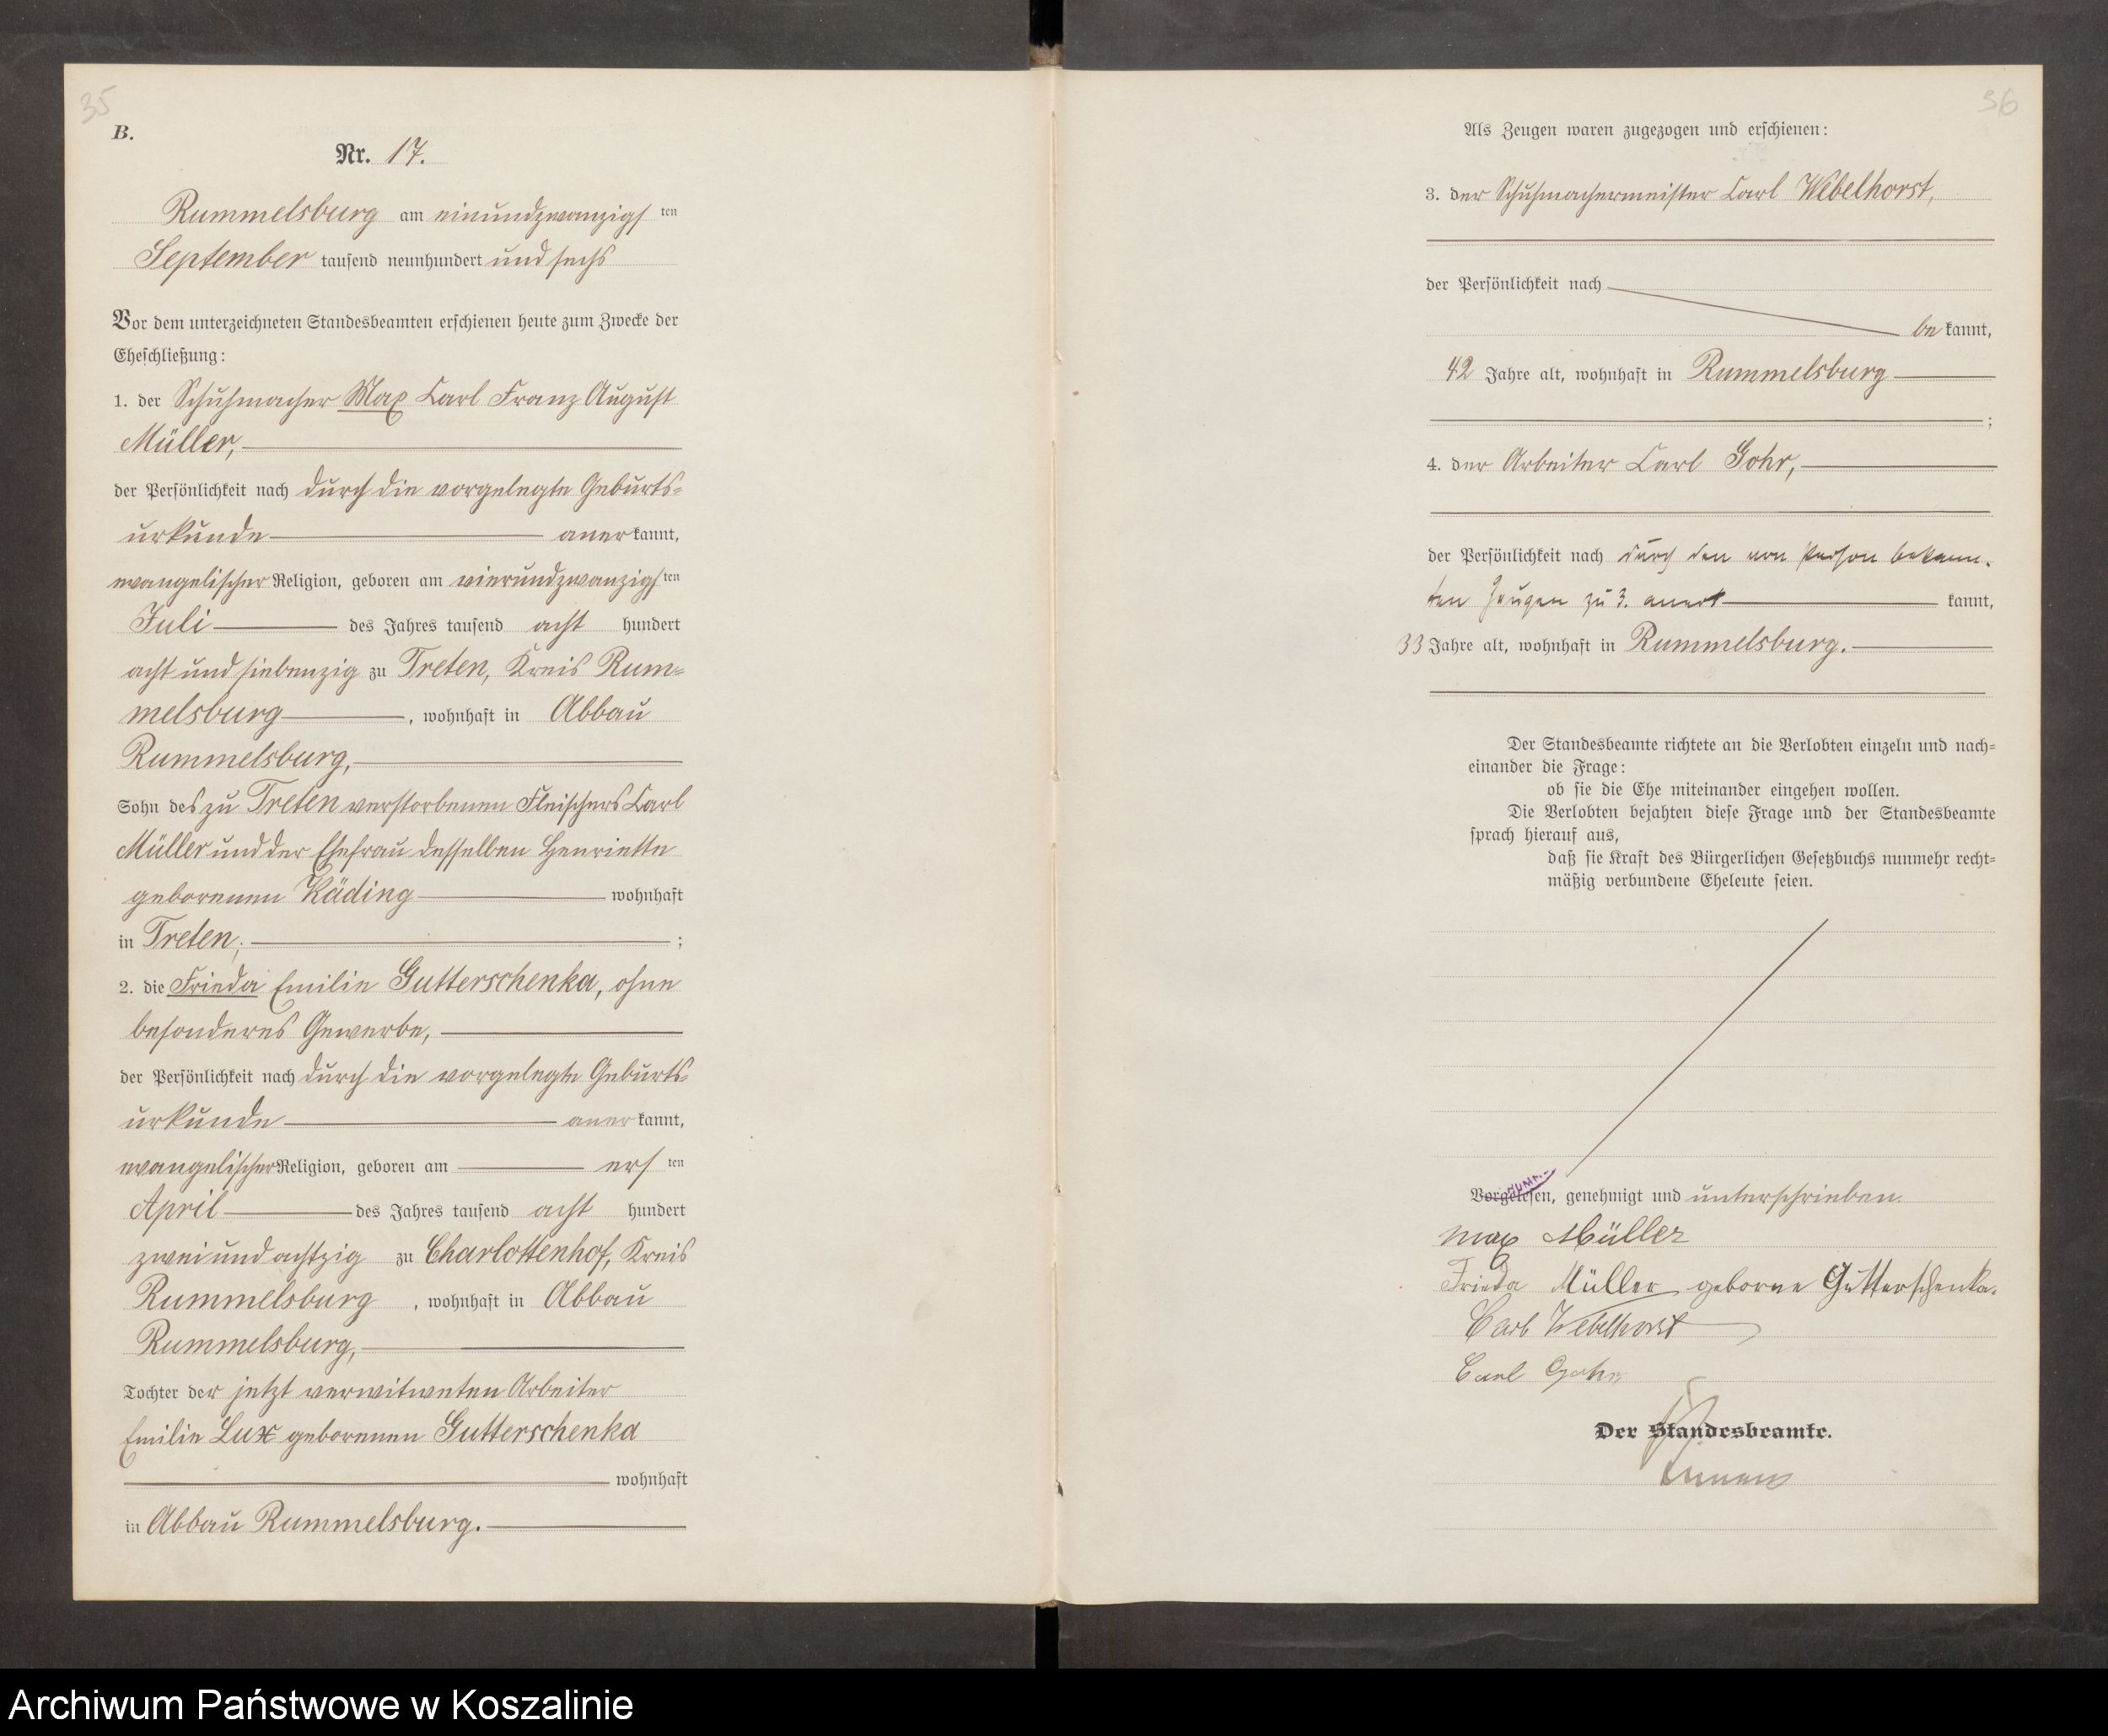 35
B.
Nr. 17.
Rummelsburg am einundzwanzigsten
September tausend neunhundert und sechs
Vor dem unterzeichneten Standesbeamten erschienen heute zum Zwecke der
Eheschließung:
1. der Schuhmacher Max Carl Franz August
Müller,
der Persönlichkeit nach durch die vorgelegte Geburts=
urkunde anerkannt,
evangelischer Religion, geboren am vierundzwanzigsten
Juli des Jahres tausend acht hundert
acht und siebenzig zu Treten, Kreis Rum=
melsburg, wohnhaft in Abbau
Rummelsburg,
Sohn des zu Treten verstorbenen Fleischers Carl
Müller und der Ehefrau desselben Henriette
geborenen Käding wohnhaft
in Treten;
2. die Frieda Emilie Gutterschenka, ohne
besonderes Gewerbe,
der Persönlichkeit nach durch die vorgelegte Geburts=
urkunde anerkannt,
evangelischer Religion, geboren am ersten
April des Jahres tausend acht hundert
zwei und achtzig zu Charlottenhof, Kreis
Rummelsburg, wohnhaft in Abbau
Rummelsburg,
Tochter der jetzt verwitweten Arbeiter
Emilie Lux geborenen Gutterschenka
wohnhaft
in Abbau Rummelsburg.
36
Als Zeugen waren zugezogen und erschienen:
3. der Schuhmachermeister Carl Webelhorst,
der Persönlichkeit nach
be kannt,
42 Jahre alt, wohnhaft in Rummelsburg
;
4. der Arbeiter Carl Gohr,
der Persönlichkeit nach durch den von Person bekann-
ten Zeugen zu 3. anerkannt,
33 Jahre alt, wohnhaft in Rummelsburg.
Der Standesbeamte richtete an die Verlobten einzeln und nach=
einander die Frage:
ob sie die Ehe miteinander eingehen wollen.
Die Verlobten bejahten diese Frage und der Standesbeamte
sprach hierauf aus,
daß sie Kraft des Bürgerlichen Gesetzbuchs nunmehr recht=
mäßig verbundene Eheleute seien.
Vorgelesen, genehmigt und unterschrieben.
Max Müller
Frieda Müller geborne Gutterschenka.
Carl Webelhorst
Carl Gohr
Der Standesbeamte.
Archiwum Państwowe w Koszalinie